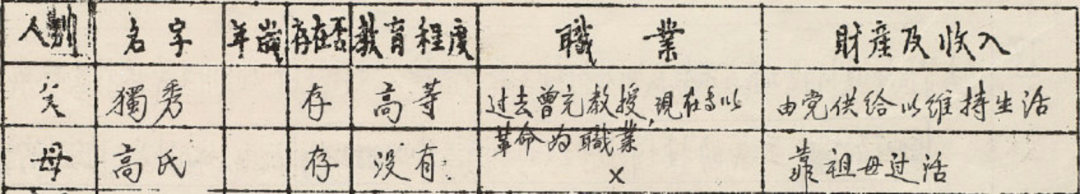 人别 名字 年歲 存在否 教育程度 職業 財產及收入
父 獨秀 存 高等 过去曾充教授,現在多以 由党供给以维持生活
革命为職業
母 高氏 存 没有. × 靠祖母过活